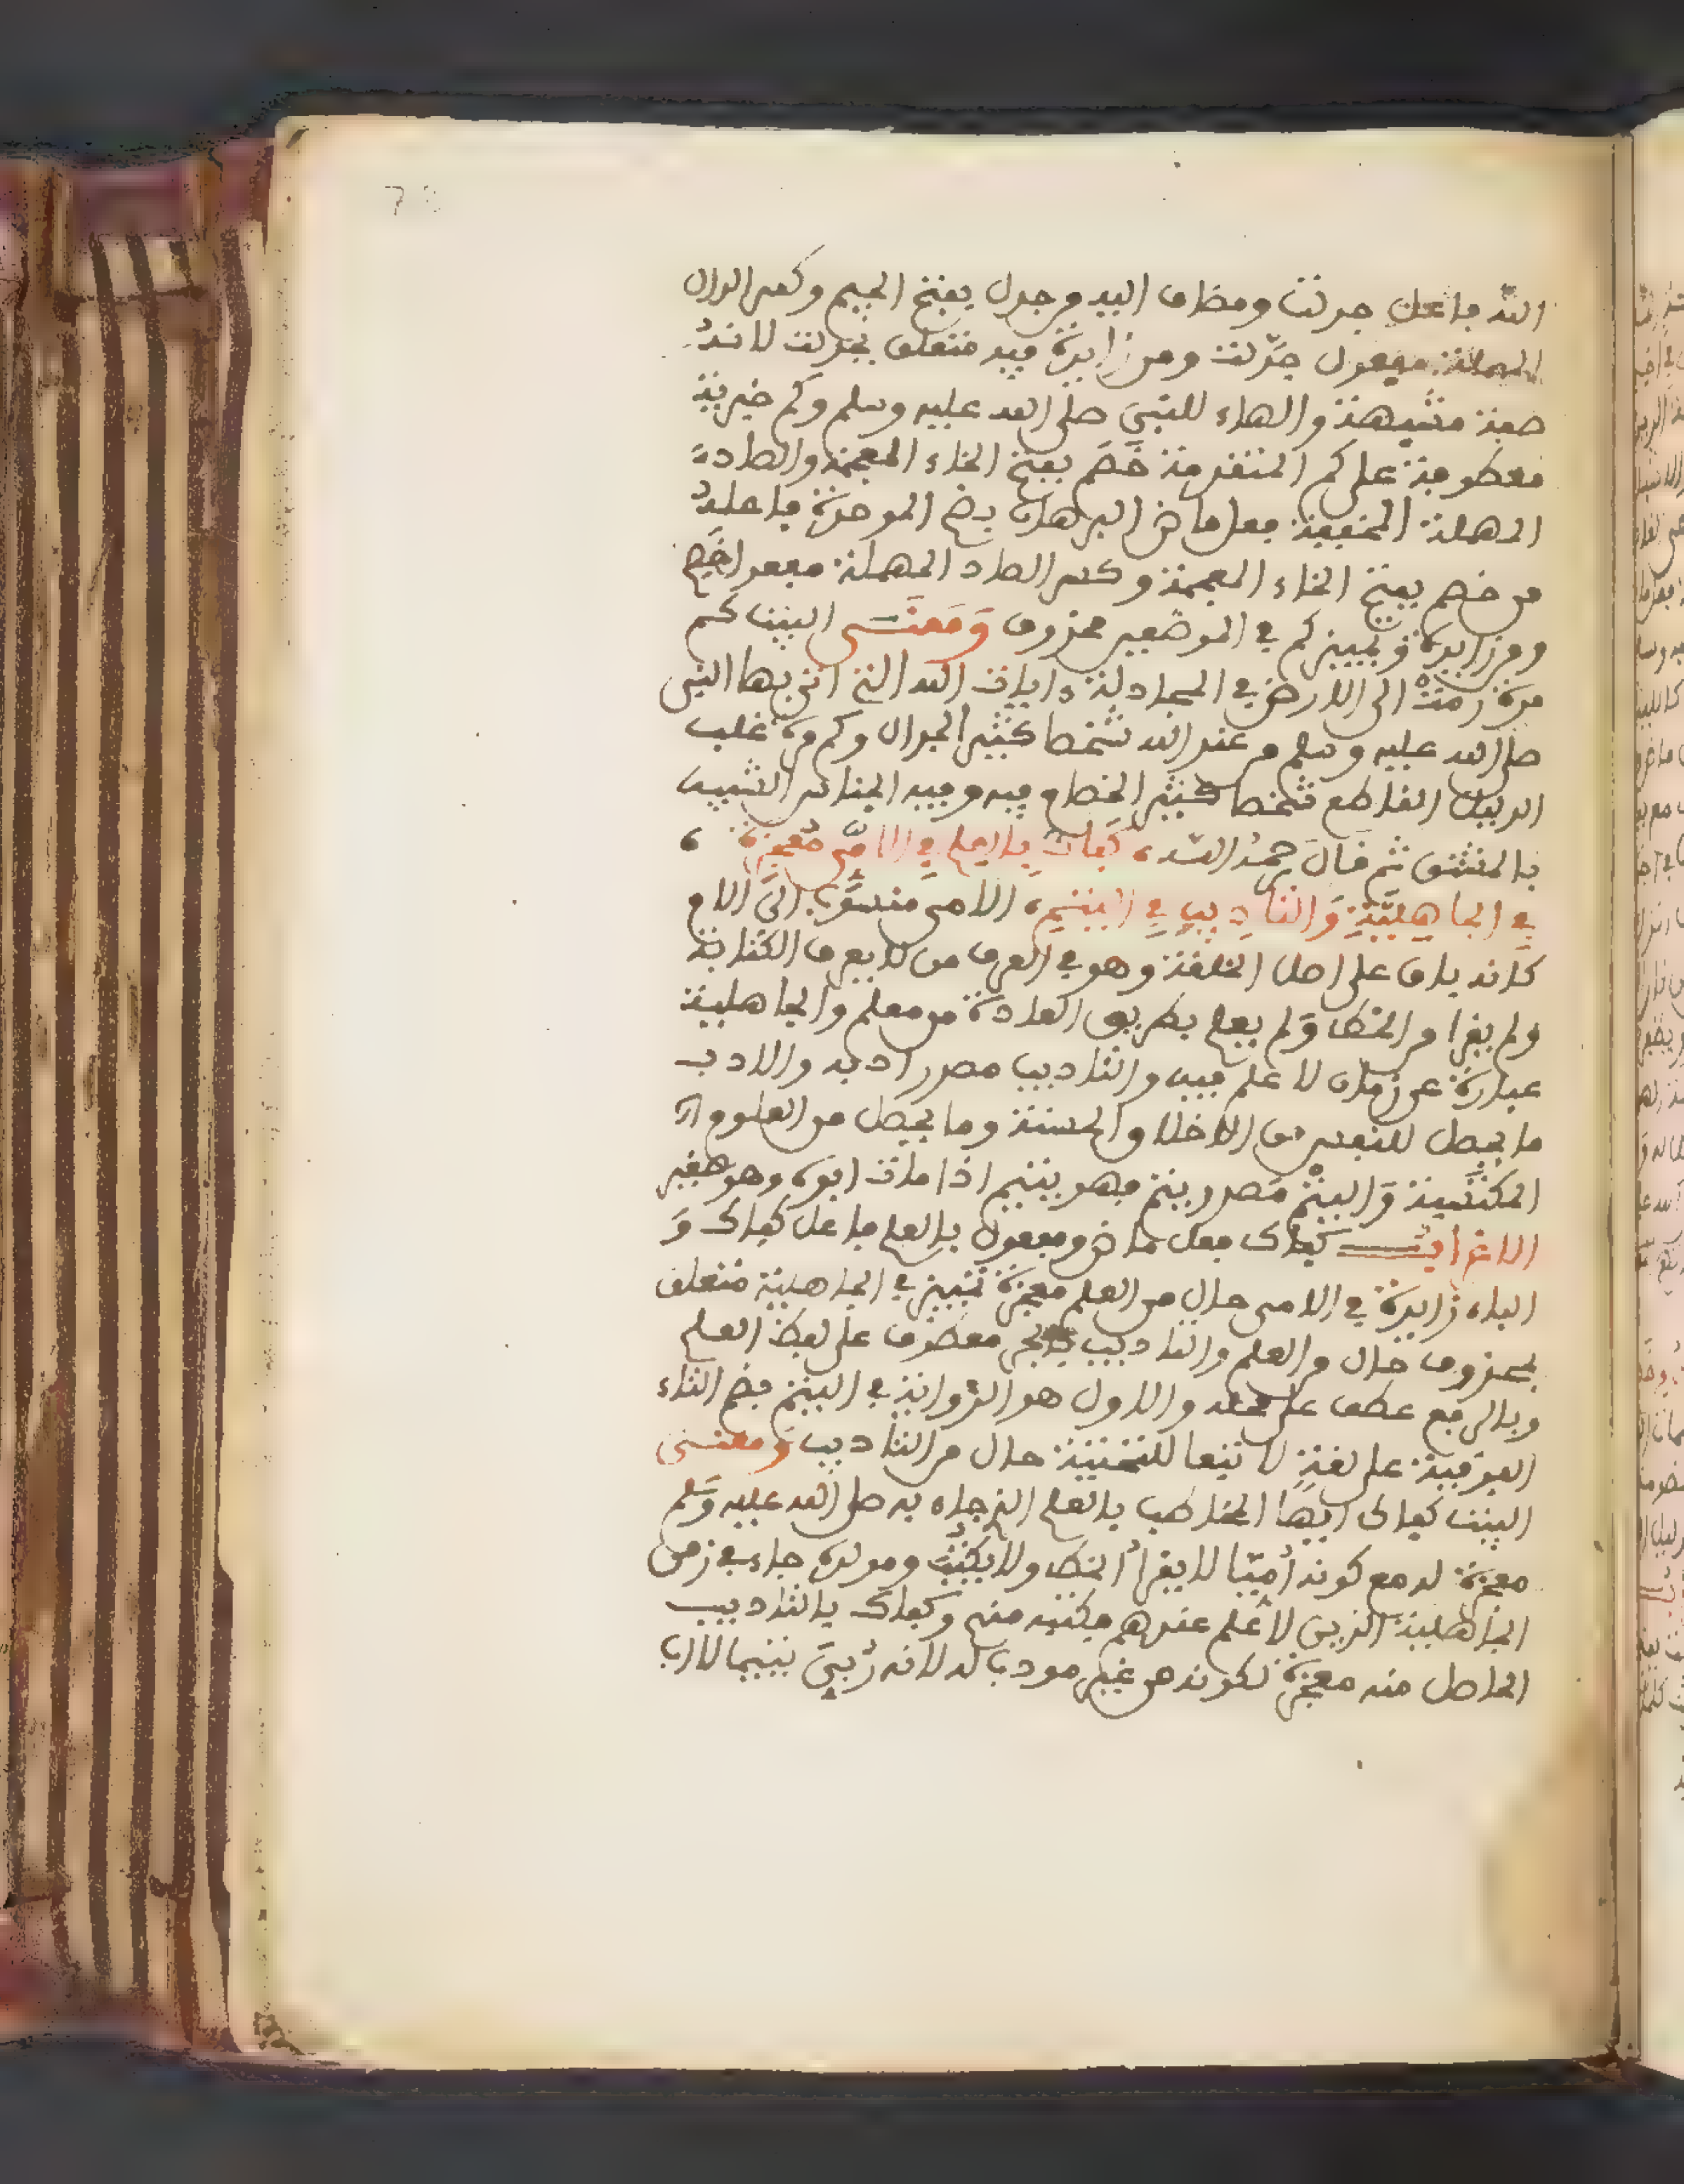 الله فاعل جدلت ومضاف اليه وجدل بفتح الجيم وكسر الدال
المهملة مفعول جدّلت ومن زايدة فيه متعلق بجدلت لانه
صفة مشبهة والهاء للنبي صلى الله عليه وسلم وكم خبرية
معطوفة على كم المتقدمة خَصَم بفتح الخاء المعجمة والصاد
المهملة المخففة فعل ماض البرهان بضم الموحدة فاعله
من خصم بفتح الخاء المعجمة وكسر الصاد المهملة مفعول خصم
ومن زايدة وتمييز كم في الموضعين محذوف وَمَعنَى البيت كم
مرة رمتْ الى الارض في المجادلة ءايات الله التي اتى بها النبي
صلى الله عليه وسلم من عند الله شخصا كثير الجدال وكم مرة غلب
الدليل القاطع شخصا كثير الخصام فيه وفيه الجناس الشبيه
بالمشتق ثم قال رحمه الله، كَفاك بِالعلمِ في الاُمّيِّ مُعجزةً ،
في الجاهِليّةِ وَالتادِيبِ في اليتمِ، الامي منسوب الى الام
كانه باق على اصل الخلقة وهو في العرف من لا يعرف الكتابة
ولم يقرا من الخط ولم يعلم بطريق العادة من معلم والجاهلية
عبارة عن زمان لا علم فيه والتاديب مصدر ادبه والادب
ما يحصل للنفس من الاخلاق الحسنة وما يحصل من العلوم
المكتسبة وَاليتْمُ مَصدر يتم فهو يتيم اذا مات ابوه وهو صغير
الاعراب كفاك فعل ماض ومفعول بالعلم فاعل كفاك وَ
الباء زايدة في الامي حال من العلم معجزة تمييز في الجاهلية متعلق
بمحذوف حال من العلم والتاديب بالجر معطوف على لفظ العلم
وبالرفع عطف على محله والاول هو الرواية في اليتم بضم التاء
الفوقية على لغةٍ لا تبعا للتحتية حال من التاديب وَمعنى
البيت كفاك ايها المخاطب بالعلم الذي جاء به صلى الله عليه وسلم
معجزة له مع كونه أُمّيّا لا يقرأ الخط ولا يكتب ومولده جاء في زمن
الجاهلية الذين لا علم عندهم يكتبه منهم وكفاك بالتاديب
الحاصل منه معجزة لكونه من غير مودب له لانه رُبيَ يتيما لا اب